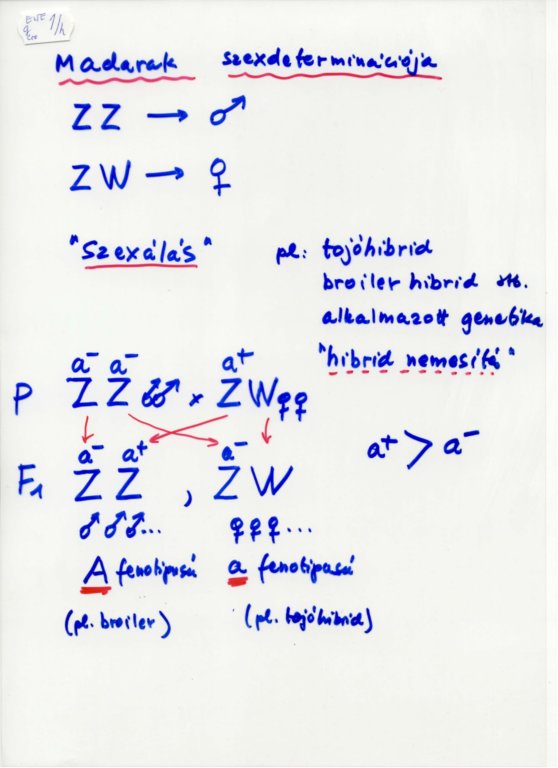 1/h
Madarak szexdeterminációja
ZZ → ♂
ZW → ♀
"Szexálás"
pl: tojóhibrid
broiler hibrid stb.
alkalmazott genetika
"hibrid nemesítő"
a⁻ a⁻ a⁺
P ZZ ♂♂ × ZW ♀♀
a⁺ > a⁻
a⁻ a⁺ a⁻
F₁ ZZ , ZW
♂♂♂... ♀♀♀...
A fenotipusú a fenotipusú
(pl. broiler) (pl. tojóhibrid)